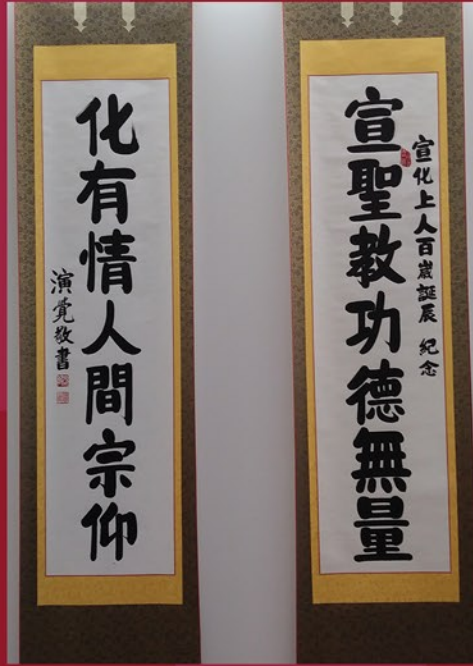 宣化上人百歲誕辰 紀念
宣聖教功德無量
化有情人間宗仰
演覺敬書